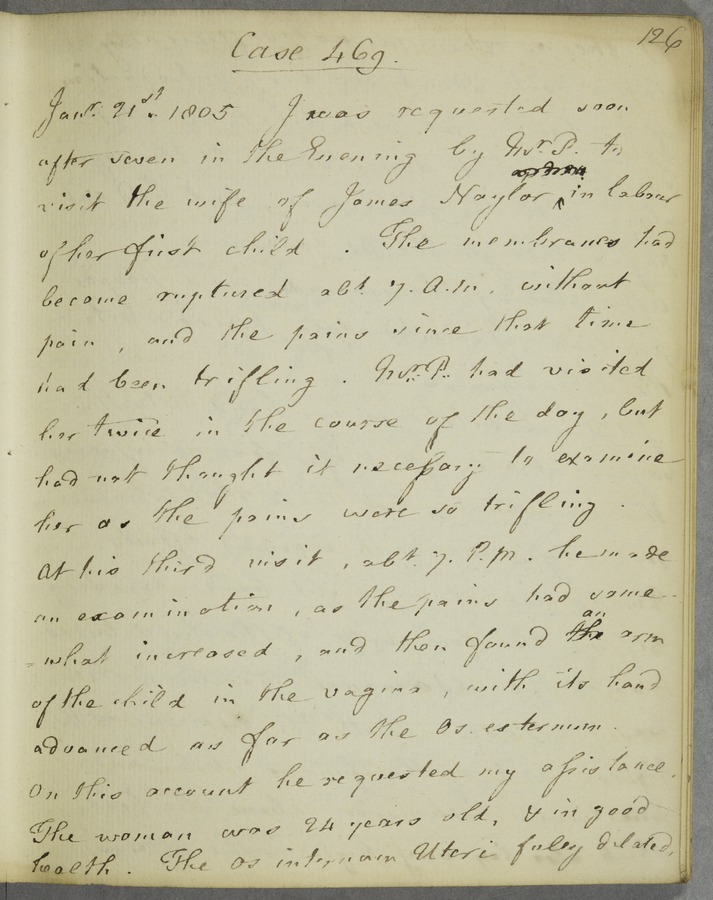 126
Case 469.
Janr. 21st. 1805 I was requested soon
after seven in the Evening by Mr. P. to
visit the wife of James Naylor, in labour
of her first child. The membranes had
become ruptured abt. 7. A.M. without
pain, and the pains since that time
had been trifling. Mr. P. had visited
her twice in the course of the day, but
had not thought it necessary to examine
her as the pains were so trifling.
At his third visit, abt. 7. P.M. he made
an examination, as the pains had some-
=what increased, and then found an arm
of the child in the vagina, with its hand
advanced as far as the Os. externum.
On this account he requested my assistance.
The woman was 24 years old, & in good
health. The os internum Uteri fully dilated,